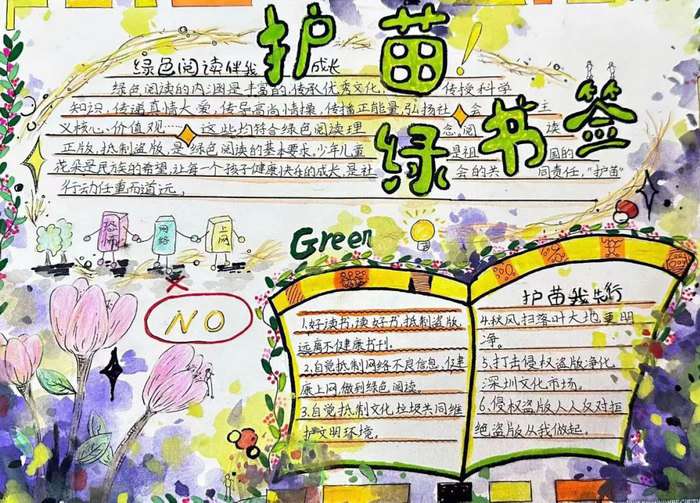 护苗!
绿书签
绿色阅读伴我成长
绿色阅读的内涵是丰富的,传承优秀文化,传授科学
知识,传递真情大爱,传导高尚情操,传播正能量,弘扬社会主
义核心价值观……这些均符合绿色阅读理念,阅读
正版,抵制盗版,是绿色阅读的基本要求,少年儿童是祖国的
花朵是民族的希望,让每一个孩子健康快乐的成长,是社会的共同责任,"护苗"
行动任重而道远。
网络
上网
Green
NO
1.好读书,读好书,抵制盗版,
远离不健康书刊。
2.自觉抵制网络不良信息,健
康上网,做到绿色阅读。
3.自觉抵制文化垃圾共同维
护文明环境。
护苗我先行
4.秋风扫落叶大地更明
净。
5.打击侵权盗版净化
深圳文化市场。
6.侵权盗版人人反对拒
绝盗版从我做起。